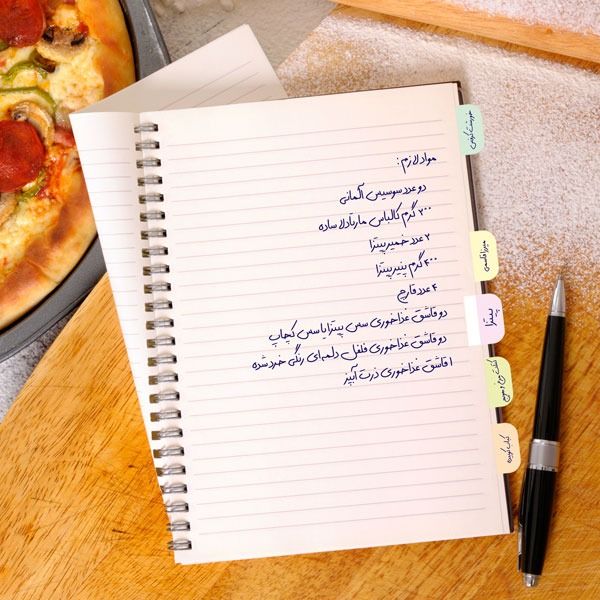 مواد لازم :
دو عدد سوسیس آلمانی
۲۰۰ گرم کالباس مارتادلا ساده
۲ عدد خمیر پیتزا
۴۰۰ گرم پنیر پیتزا
۴ عدد قارچ
دو قاشق غذاخوری سس پیتزا یا سس کچاپ
دو قاشق غذاخوری فلفل دلمه‌ای رنگی خرد شده
۱ قاشق غذاخوری ذرت آبپز
میرزا قاسمی
پیتزا
کباب کوبیده